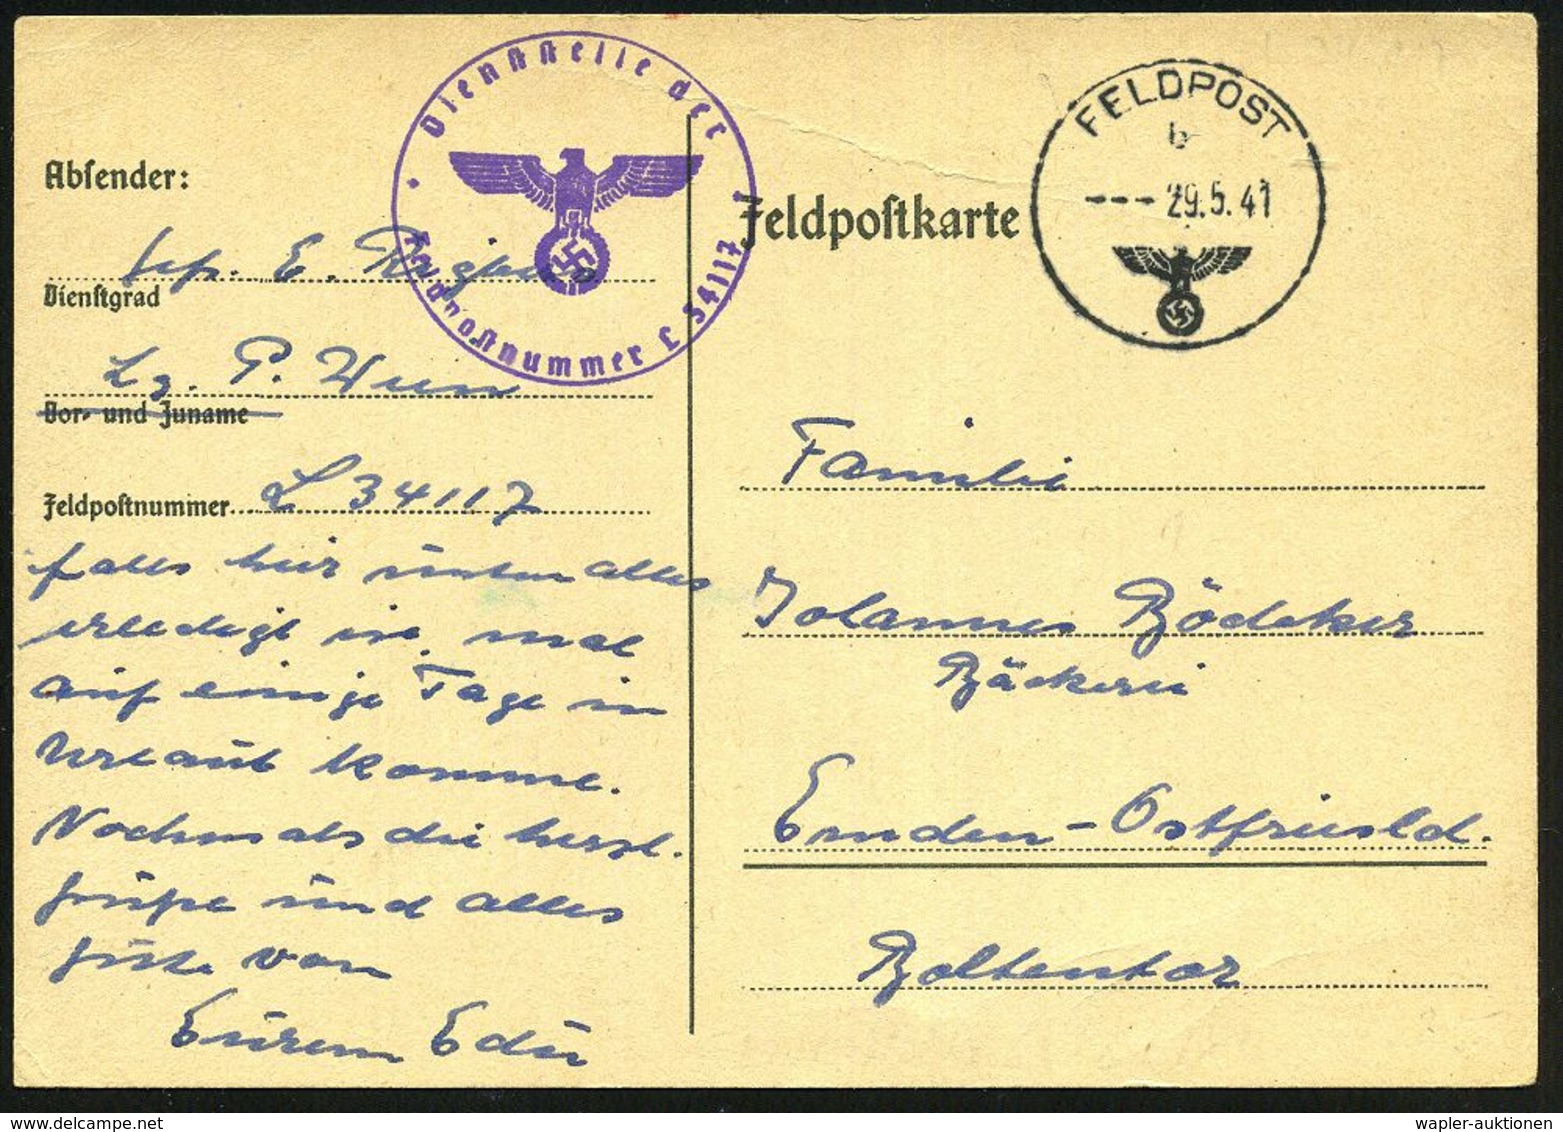 Dienststelle der
Feldpostnummer L 34117
FELDPOST
b
--- 29.5.41
Absender:
Feldpostkarte
E.
Dienstgrad
Lg. P. Wien
Vor- und Zuname
Feldpostnummer L 34117
falls hier unten alles
erledigt ist, mal
auf einige Tage in
Urlaub komme.
Nochmals die herzl.
Grüße und alles
Gute von
Eurem Edu
Familie
Johannes Bödeker
Bäckerei
Emden-Ostfriesld.
Boltentor
wapler-auktionen